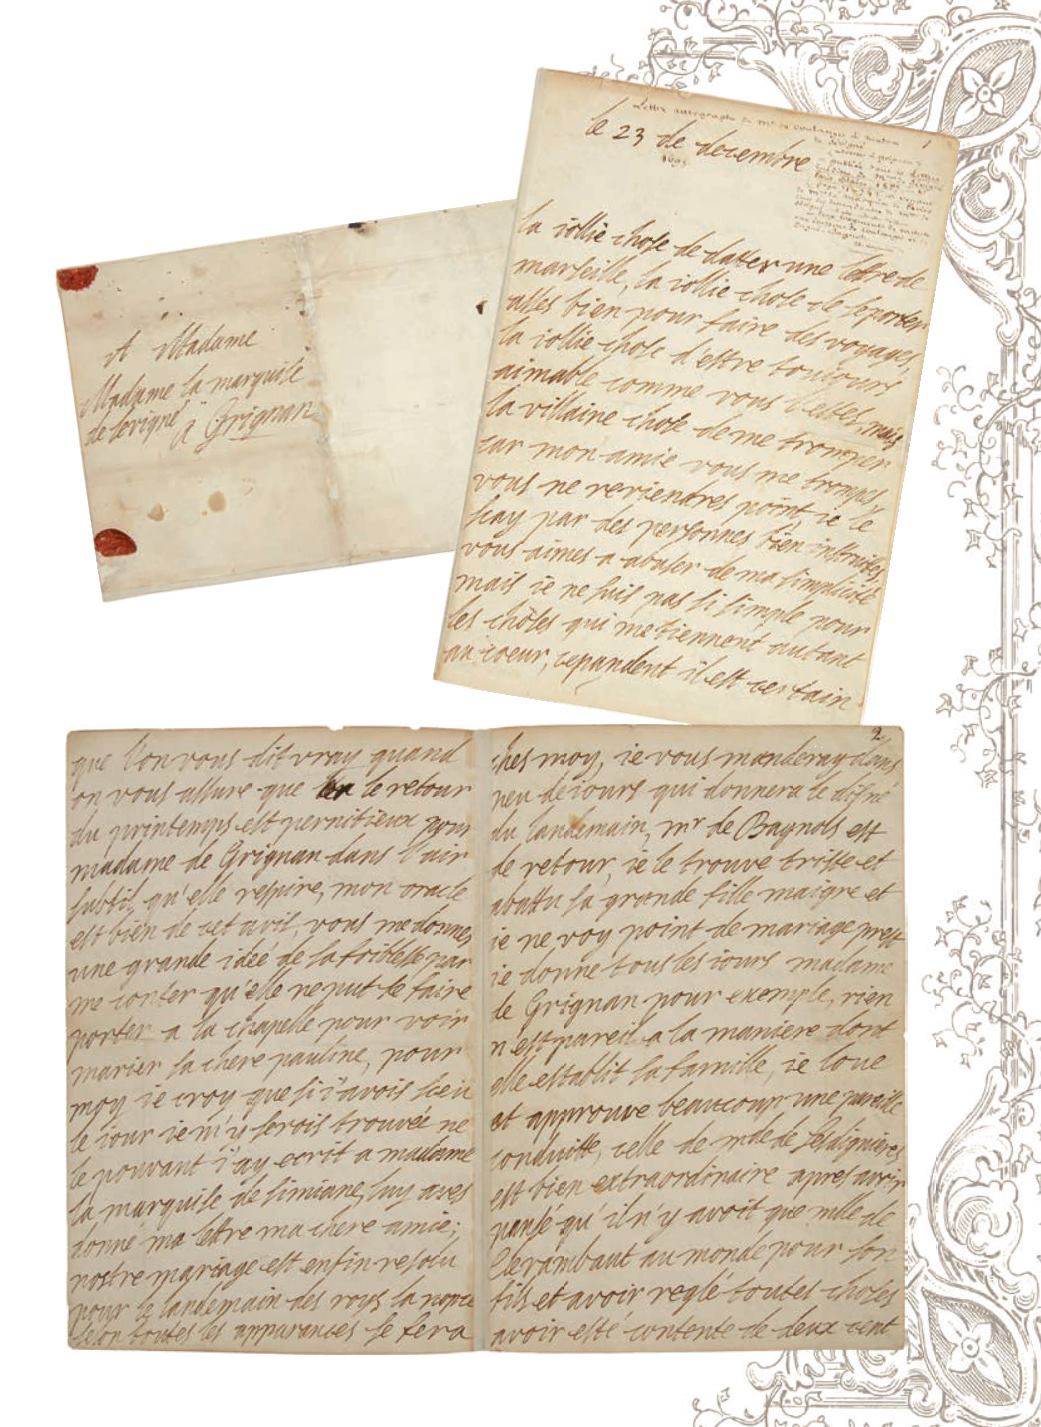 A Madame
Madame la marquise
de sevigné
à Grignan
Lettre autographe de Mme de Coulanges à Madame
de Sévigné
1
le 23 de decembre
1695
la jollie chose de dater une lettre de
marseille, la jollie chose de se porter
asses bien pour faire des voyages,
la jollie chose d'estre toujours
aimable comme vous l'estes, mais
la villaine chose de me tromper
car mon amie vous me trompes
vous ne reviendres point, ie le
scay par des personnes bien instruites,
vous aimes a abuser de ma simplicité
mais ie ne suis pas si simple pour
les choses qui me tiennent autant
au coeur, cepandent il est certain
que l'on vous dit vray quand
on vous assure que le retour
du printemps est pernitieux pour
madame de Grignan dans l'air
subtil qu'elle respire, mon oracle
est bien de cet avis, vous me donnes
une grande idée de sa foiblesse par
me conter qu'elle ne put se faire
porter a la chapelle pour voir
marier sa chere pauline, pour
moy ie croy que si i'avois sceu
le iour ie m'y serois trouvée ne
le pouvant i'ay ecrit a madame
la marquise de simiane, luy aves
donné ma lettre ma chere amie;
nostre mariage est enfin resolu
pour le landemain des roys la nopce
selon toutes les apparances se fera
2
ches moy, ie vous manderay dans
peu de iours qui donnera le disné
du landemain, mr de Bagnols est
de retour, ie le trouve triste et
abattu sa grande fille maigre et
ie ne voy point de mariage prest
ie donne tous les iours madame
de Grignan pour exemple, rien
n'est pareil a la maniere dont
elle establit sa famille, ie loue
et approuve beaucoup une pareille
conduitte, celle de mde de Lesdiguieres
est bien extraordinaire apres avoir
pansé qu'il n'y avoit que mlle de
Clerambaut au monde pour son
fils et avoir reglé toutes choses
avoir esté contente de deux cent